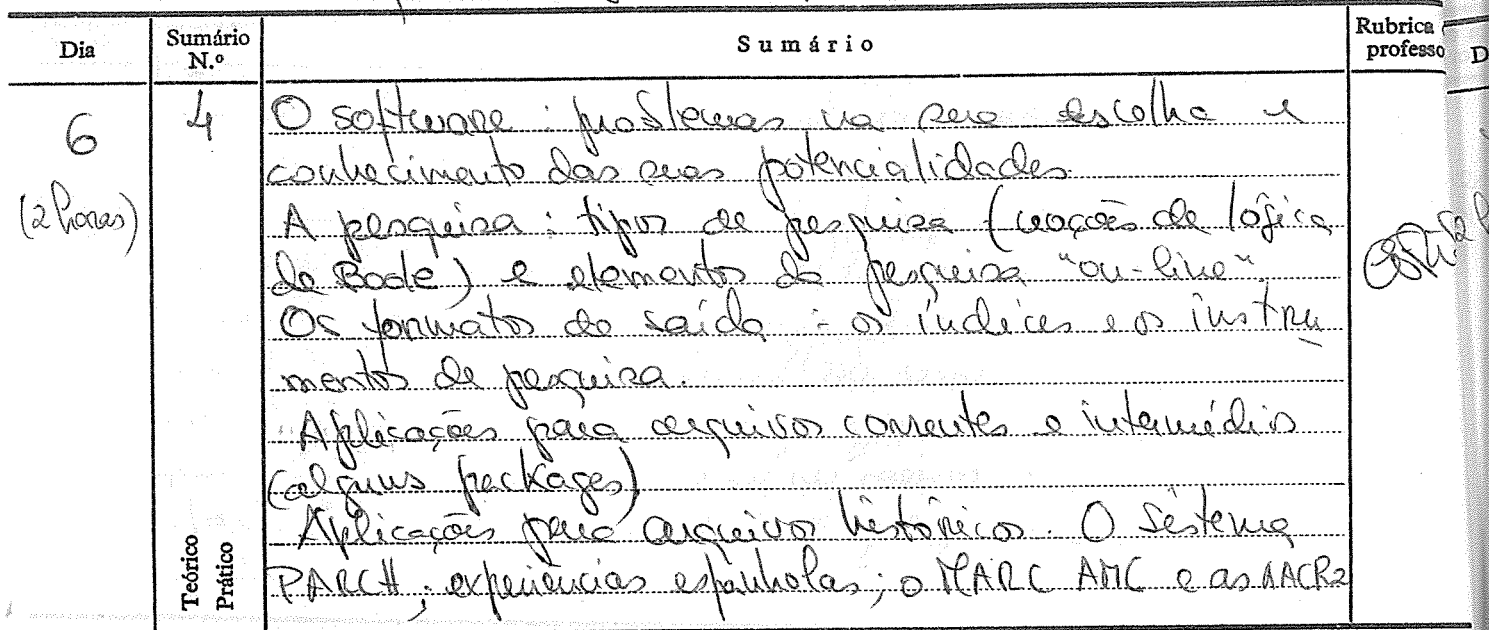 Dia
Sumário N.º
Sumário
Rubrica professo
D
6
(2 horas)
4
O software: problemas na sua escolha e
conhecimento das suas potencialidades
A pesquisa: tipos de pesquisa (noções de lógica
de Boole) e elementos da pesquisa "on-line".
Os formatos de saída: os índices e os instru
mentos de pesquisa.
Aplicações para arquivos correntes e intermédios
(alguns packages)
Aplicações para arquivos históricos. O Sistema
PARCH; experiências espanholas; o MARC AMC e as AACR2
Teórico
Prático